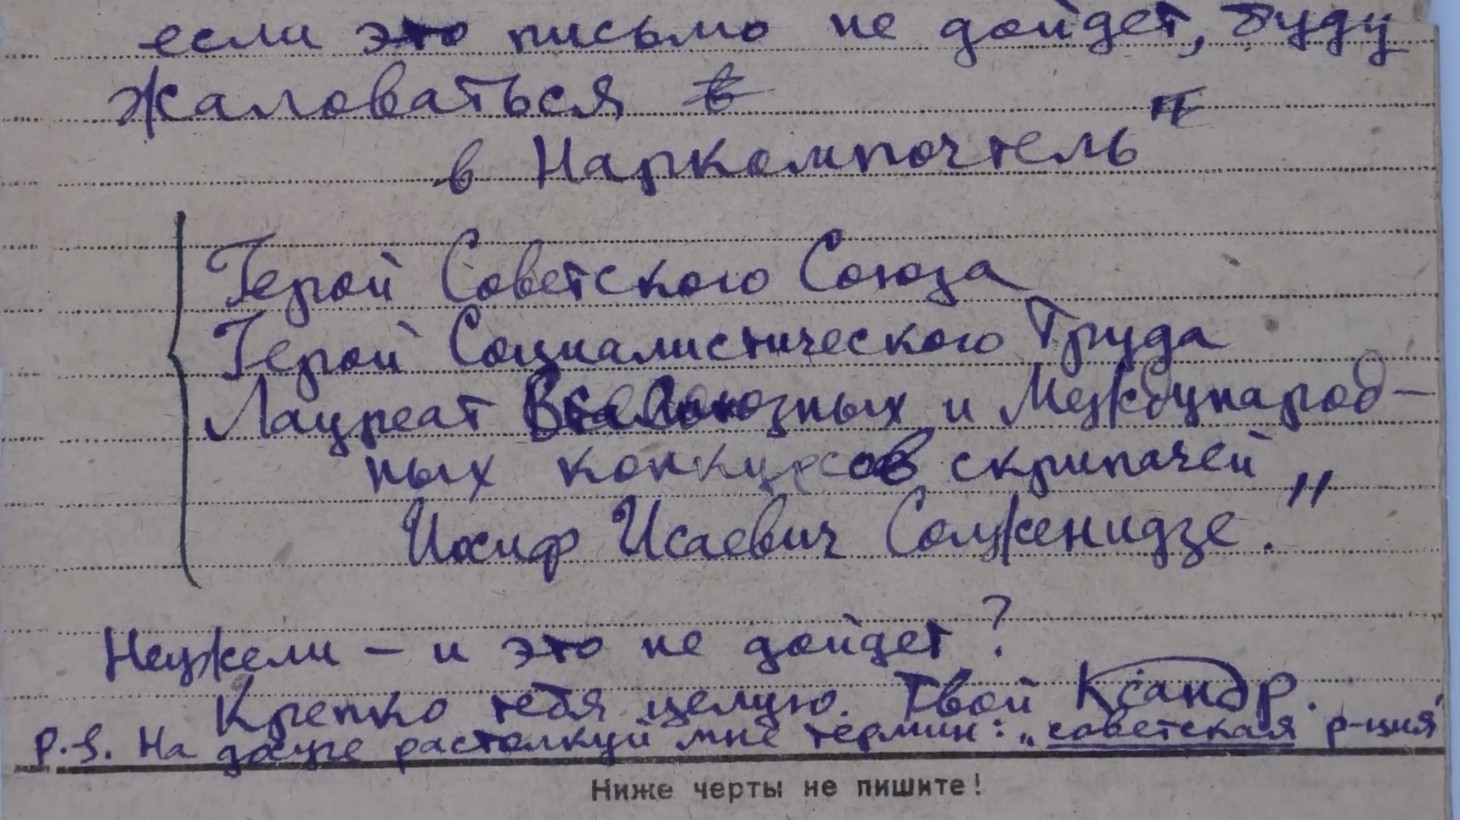 если это письмо не дойдет, буду
жаловаться в
в Наркомпочтель"
Герой Советского Союза
Герой Социалистического Труда
Лауреат Всесоюзных и Международ-
ных конкурсов скрипачей „
Иосиф Исаевич Солженидзе.
Неужели – и это не дойдет?
Крепко тебя целую. Твой Ксандр.
P.-S. На досуге растолкуй мне термин: „советская р-ция"
Ниже черты не пишите!